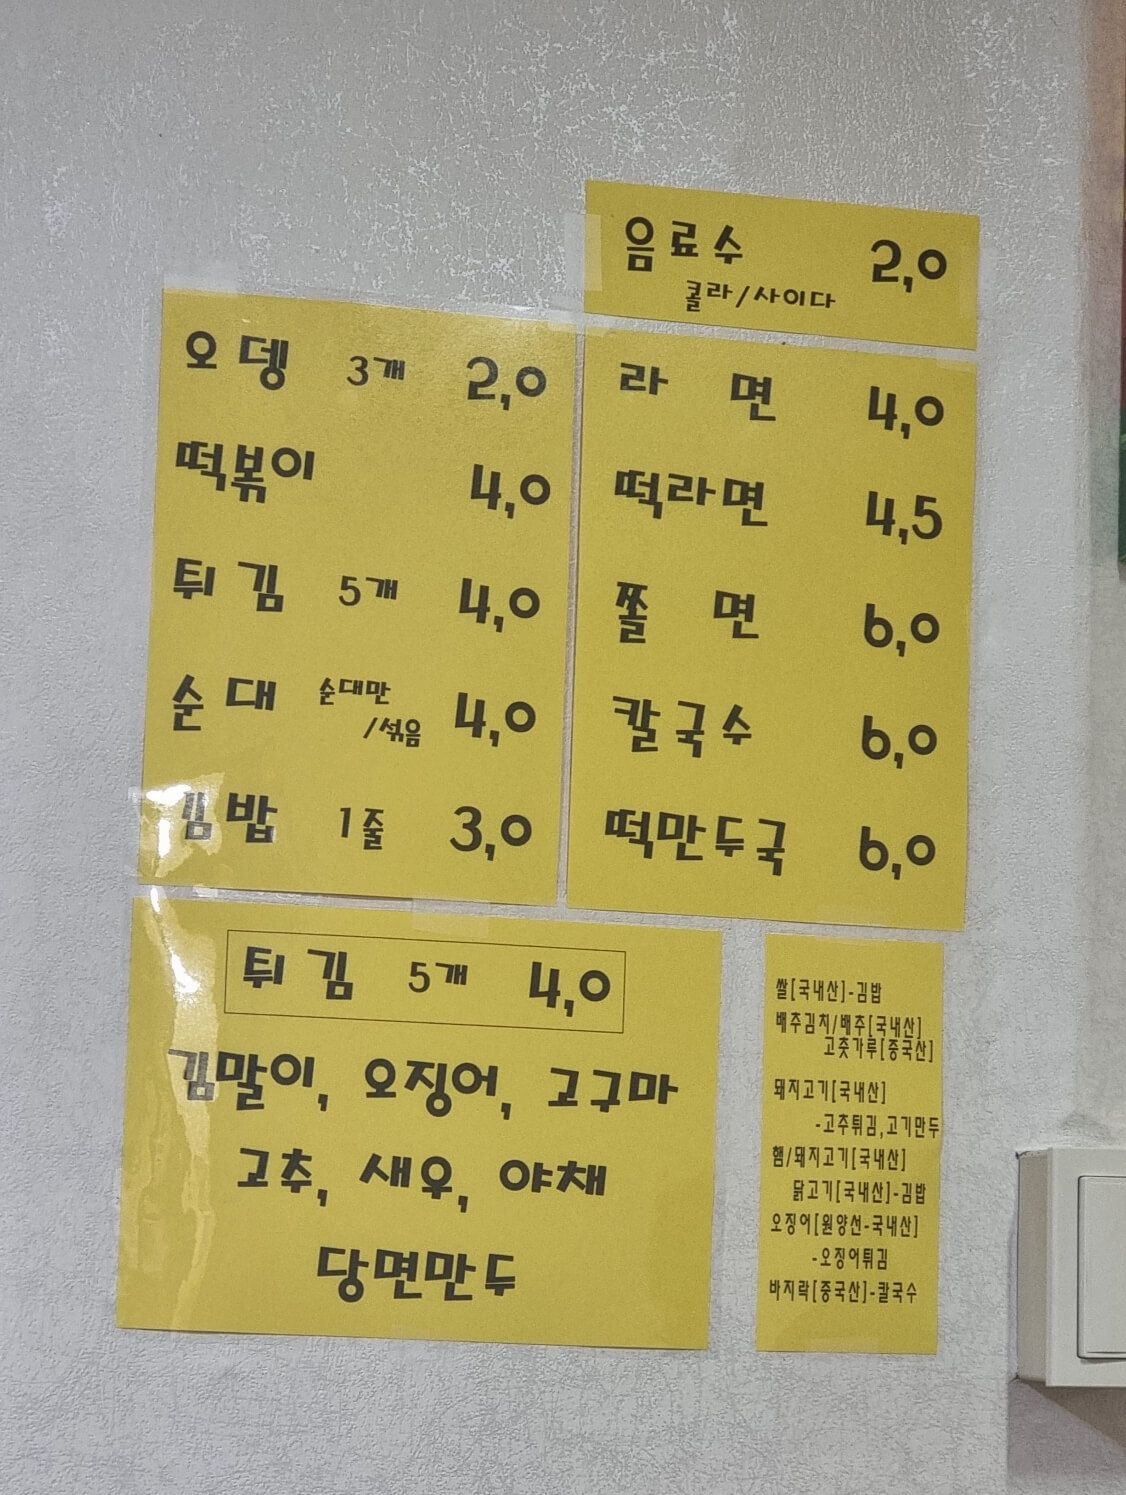 음료수 2,0
콜라/사이다
오뎅 3개 2,0
떡볶이 4,0
튀김 5개 4,0
순대 순대만 4,0
/섞음
김밥 1줄 3,0
라면 4,0
떡라면 4,5
쫄면 6,0
칼국수 6,0
떡만두국 6,0
튀김 5개 4,0
김말이, 오징어, 고구마
고추, 새우, 야채
당면만두
쌀[국내산]-김밥
배추김치/배추[국내산]
고춧가루[중국산]
돼지고기[국내산]
-고추튀김,고기만두
햄/돼지고기[국내산]
닭고기[국내산]-김밥
오징어[원양선-국내산]
-오징어튀김
바지락[중국산]-칼국수